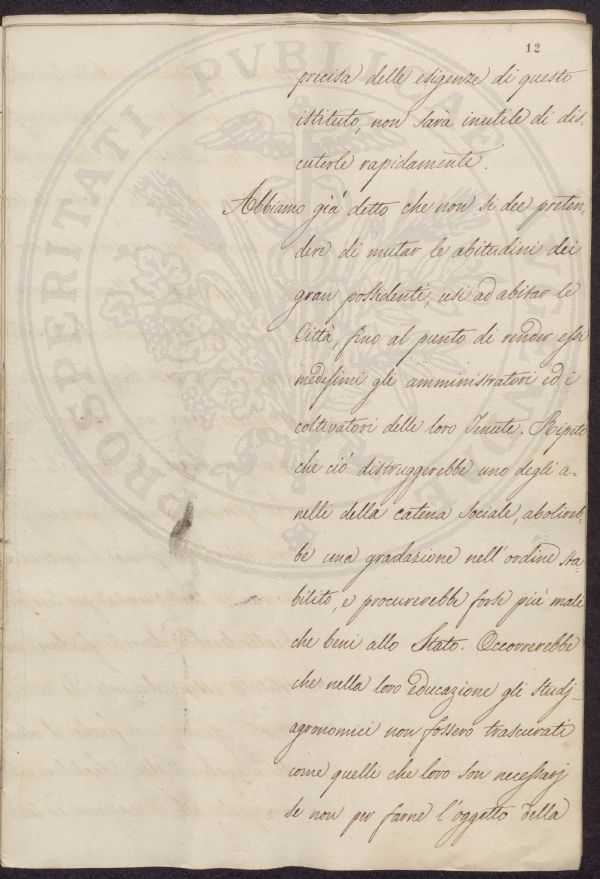 12
precisa delle esigenze di questo
istituto, non sarà inutile di dis-
cuterle rapidamente.
Abbiamo già detto che non si dee preten-
dere di mutar le abitudini dei
gran possidenti, usi ad abitar le
Città, fino al punto di render essi
medesimi gli amministratori ed i
coltivatori delle loro Tenute. Ripeto
che ciò distruggerebbe uno degli a-
nelli della catena sociale, abolireb-
be una gradazione nell'ordine sta-
bilito, e procurerebbe forse più mali
che beni allo Stato. Occorrerebbe
che nella loro educazione gli studj
agronomici non fossero trascurati
come quelli che loro son necessarj
se non per farne l'oggetto della
PROSPERITATI PVBLICAE